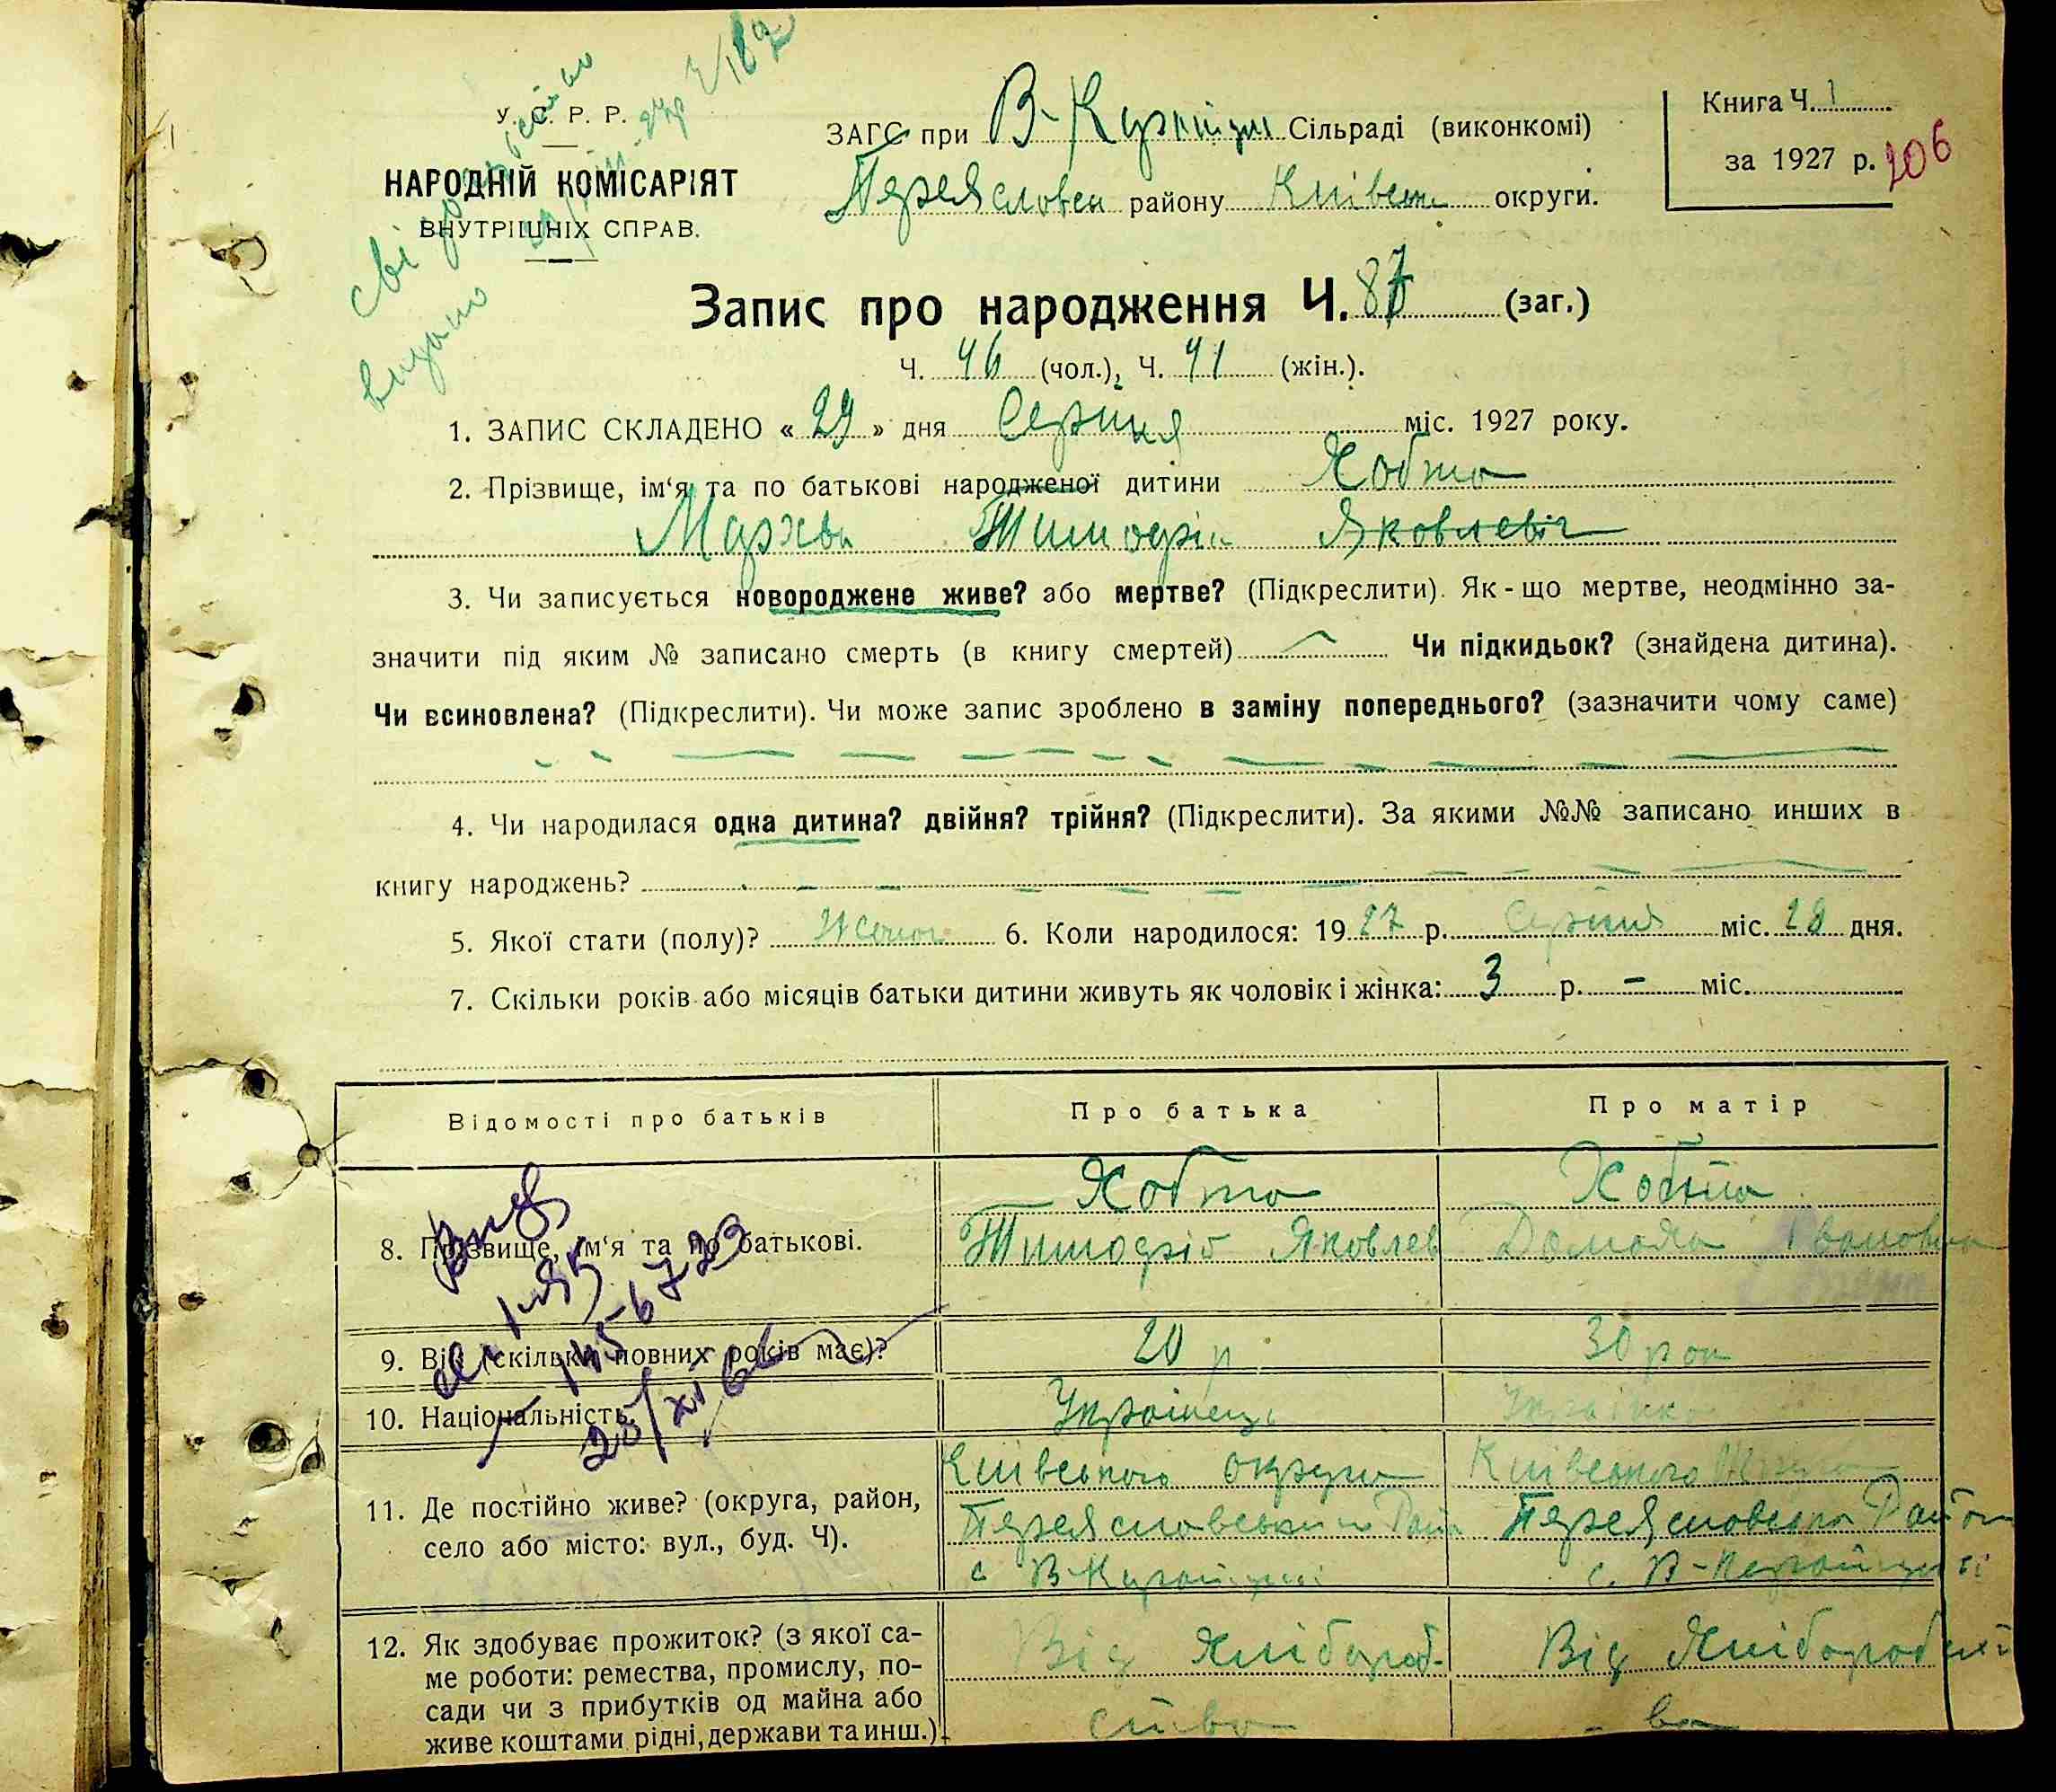 У. С. Р. Р.
НАРОДНІЙ КОМІСАРІЯТ
ВНУТРІШНІХ СПРАВ.
видано
ЗАГС при В-Каратулі Сільраді (виконкомі)
Переяславськ району Київськ округи.
Книга Ч. 1
за 1927 р. 106
Запис про народження Ч. 87 (заг.)
Ч. 46 (чол.), Ч. 41 (жін.).
1. ЗАПИС СКЛАДЕНО « 29 » дня Серпня міс. 1927 року.
2. Прізвище, ім‘я та по батькові народженої дитини Хобта
Мархва Тимофіів Яковлевіч
3. Чи записується новороджене живе? або мертве? (Підкреслити). Як-що мертве, неодмінно за-
значити під яким № записано смерть (в книгу смертей) Чи підкидьок? (знайдена дитина).
Чи всиновлена? (Підкреслити). Чи може запис зроблено в заміну попереднього? (зазначити чому саме)
4. Чи народилася одна дитина? двійня? трійня? (Підкреслити). За якими №№ записано инших в
книгу народжень?
5. Якої стати (полу)? Жіноч 6. Коли народилося: 1927 р. Серпня міс. 28 дня.
7. Скільки років або місяців батьки дитини живуть як чоловік і жінка: 3 р. – міс.
Відомості про батьків Про батька Про матір
8. Прізвище, ім‘я та по батькові. Хобта Хобта
Тимофій Яковлев Домаха Івановна
9. Вік (скільки повних років має)? 20 р 30 рок
10. Національність Українець Українка
11. Де постійно живе? (округа, район, село або місто: вул., буд. Ч). Київського округа Київського
Переяславського Рай Переяславського Район
с В-Каратулі с. В-Каратулі
12. Як здобуває прожиток? (з якої са-
ме роботи: ремества, промислу, по-
сади чи з прибутків од майна або
живе коштами рідні, держави та инш.). Від Хлібороб- Від Хліборобст
ства - ва